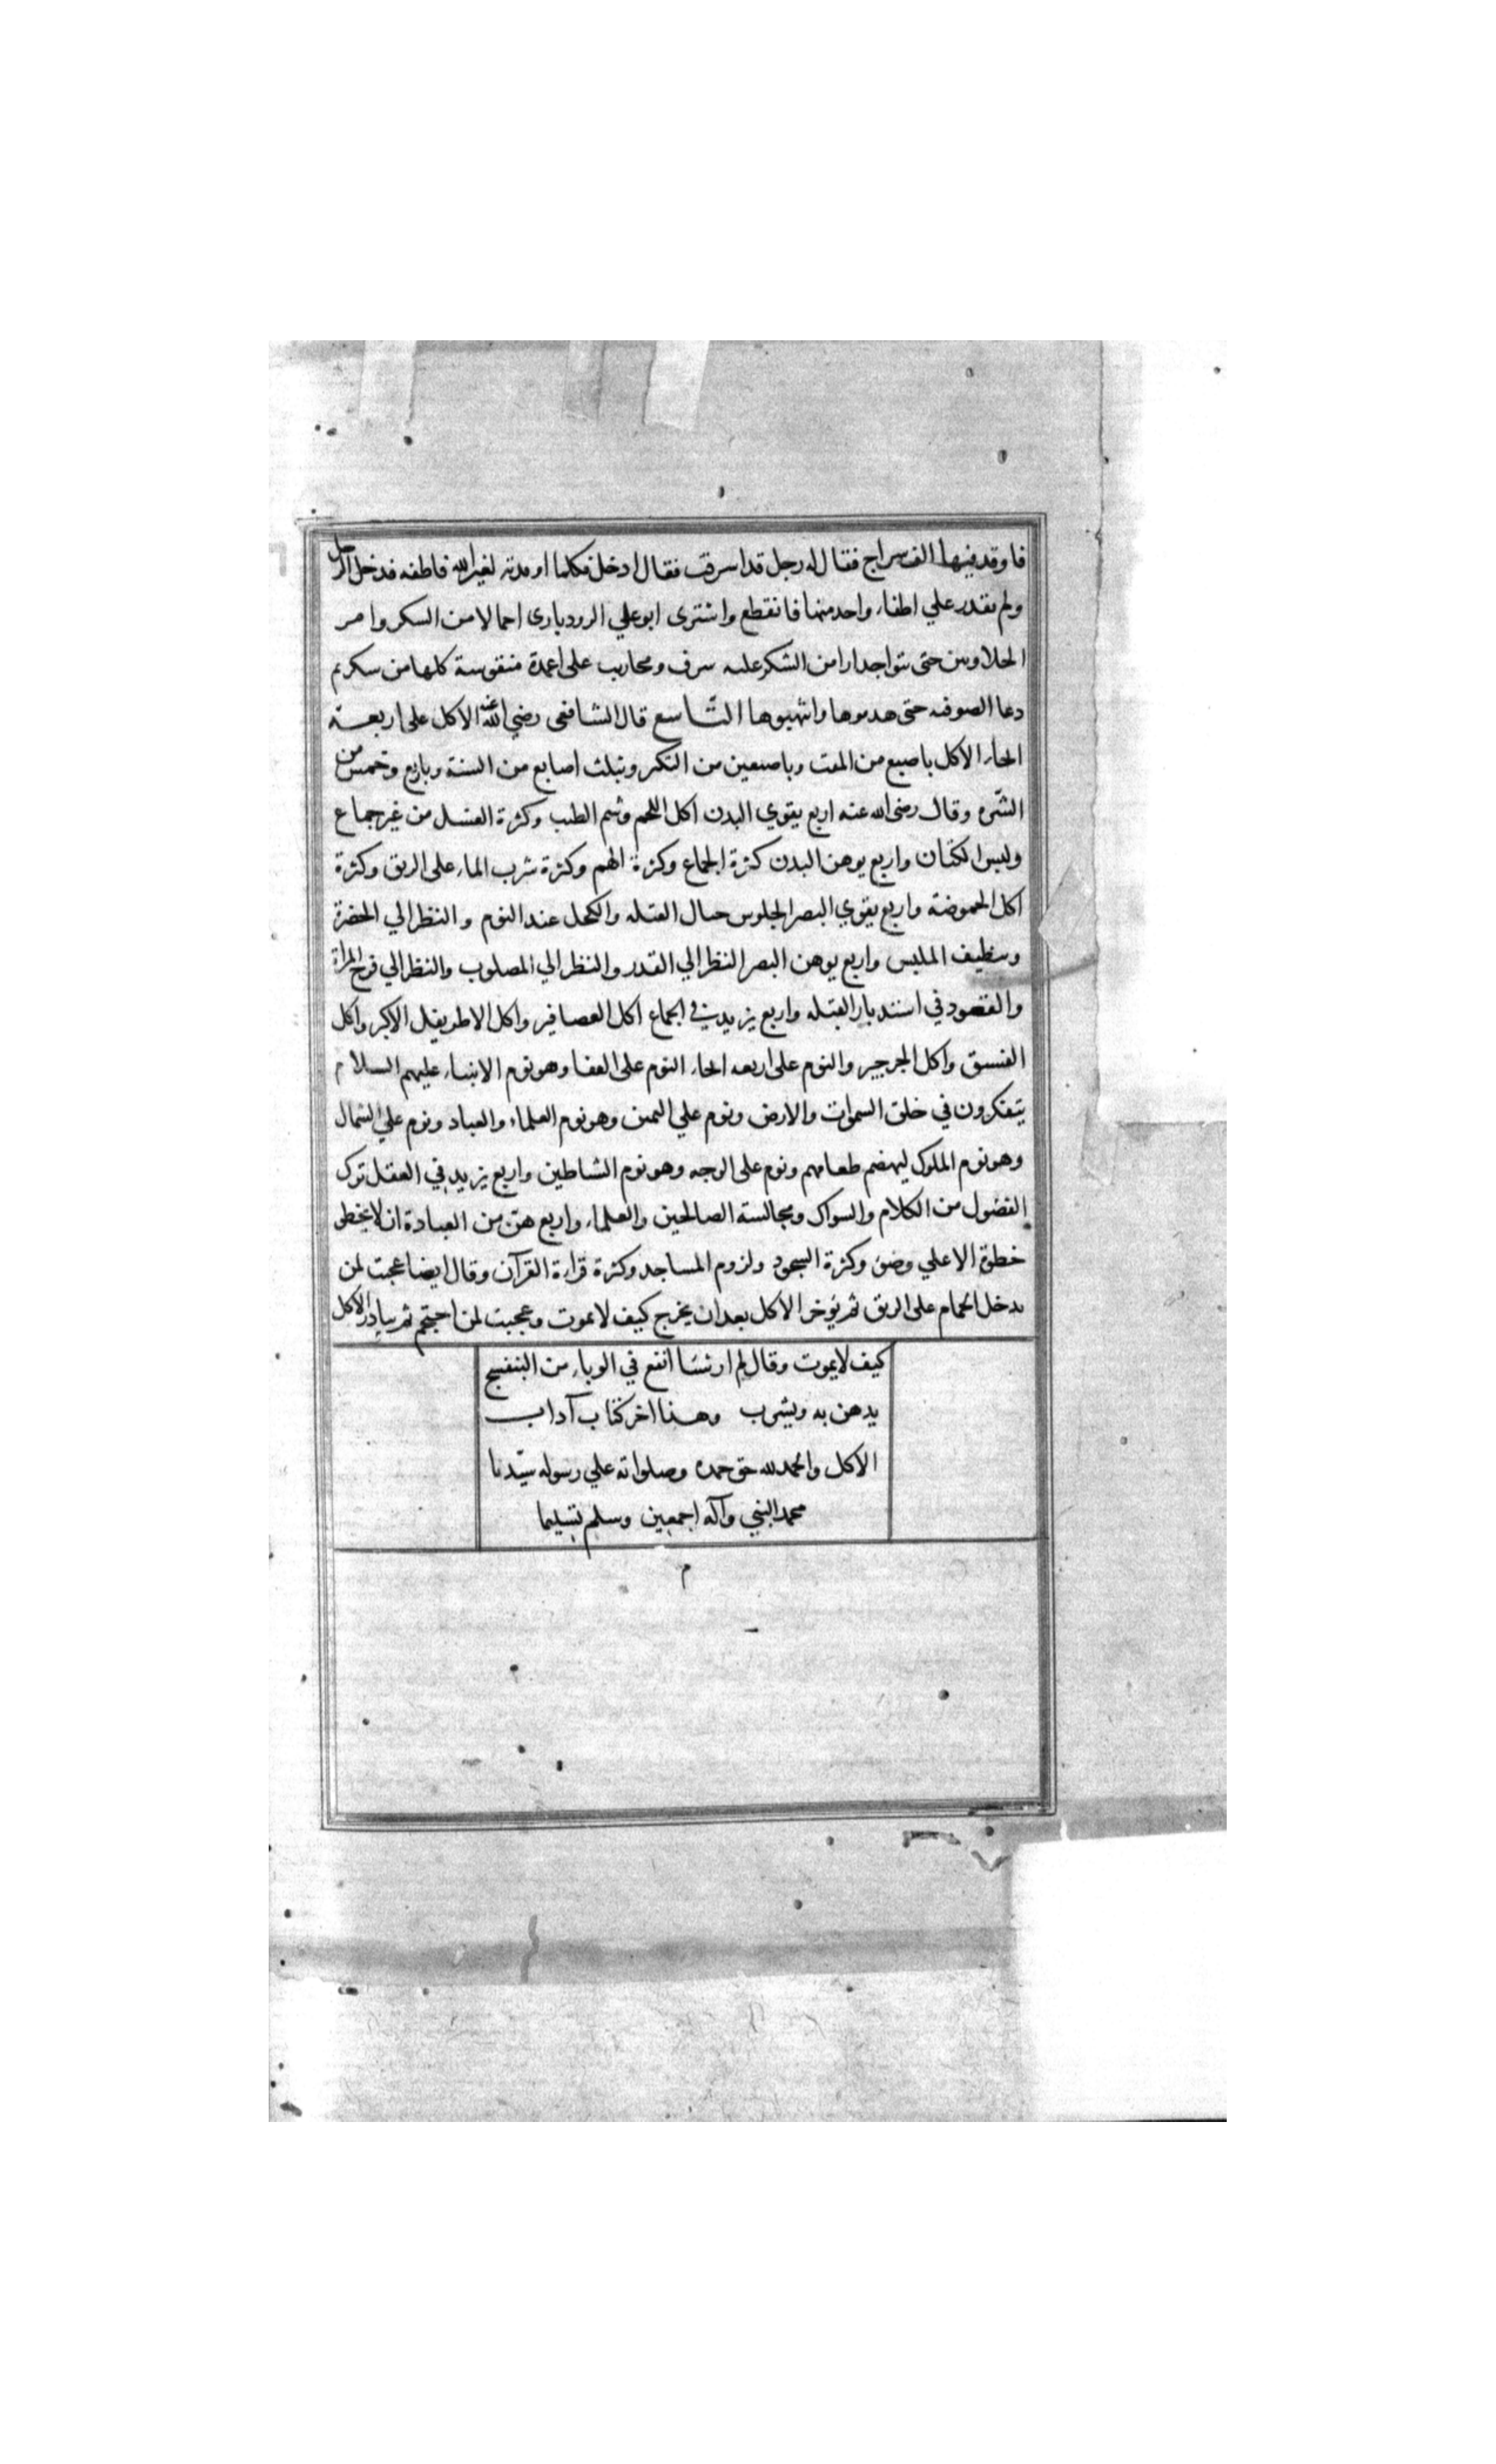 فاوقد فيها الف سراج فقال له رجل قد اسرفت فقال ادخل فكلما اوقدته لغير الله فاطفه فدخل الرجل
ولم يقدر علي اطفاء واحد منها فانقطع واشترى ابو علي الرودباري احمالا من السكر وامر
الحلاويين حتى بنوا جدارا من الشكر عليه شرف ومحاريب على اعمدة منقوشة كلها من سكر ثم
دعا الصوفيه حتى هدموها وانتهبوها التاسع قال الشافعى رضي الله عنه الاكل على اربعة
انحاء الاكل باصبع من المقت وباصبعين من التكبر وبثلث اصابع من السنة وباربع وخمس من
الشره وقال رضى الله عنه اربع يقوي البدن اكل اللحم وشم الطيب وكثرة الغسل من غير جماع
ولبس الكتان واربع يوهن البدن كثرة الجماع وكثرة الهم وكثرة شرب الماء على الريق وكثرة
اكل الحموضة واربع يقوي البصر الجلوس حيال القبله والكحل عند النوم والنظر الي الخضرة
وتنظيف الملبس واربع يوهن البصر النظر الي القذر والنظر الي المصلوب والنظر الي فرج المراة
والقعود في استدبار القبله واربع يزيد في الجماع اكل العصافير واكل الاطريفل الاكبر واكل
الفستق واكل الجرجير والنوم على اربعه انحاء النوم على القفا وهو نوم الانبياء عليهم السلام
يتفكرون في خلق السموات والارض ونوم علي اليمين وهو نوم العلماء والعباد ونوم علي الشمال
وهو نوم الملوك ليهضم طعامهم ونوم على الوجه وهو نوم الشياطين واربع يزيد في العقل ترك
الفضول من الكلام والسواك ومجالسة الصالحين والعلماء واربع هن من العبادة ان لا يخطو
خطوة الا علي وضؤ وكثرة السجود ولزوم المساجد وكثرة قراءة القرآن وقال ايضا عجبت لمن
يدخل الحمام على الريق ثم يؤخر الاكل بعد ان يخرج كيف لا يموت وعجبت لمن احتجم ثم يبادر الاكل
كيف لا يموت وقال لم ار شيئا انفع في الوباء من البنفسج
يدهن به ويشرب وهذا اخر كتاب آداب
الاكل والحمد لله حق حمده وصلواته علي رسوله سيدنا
محمد النبي وآله اجمعين وسلم تسليما
م